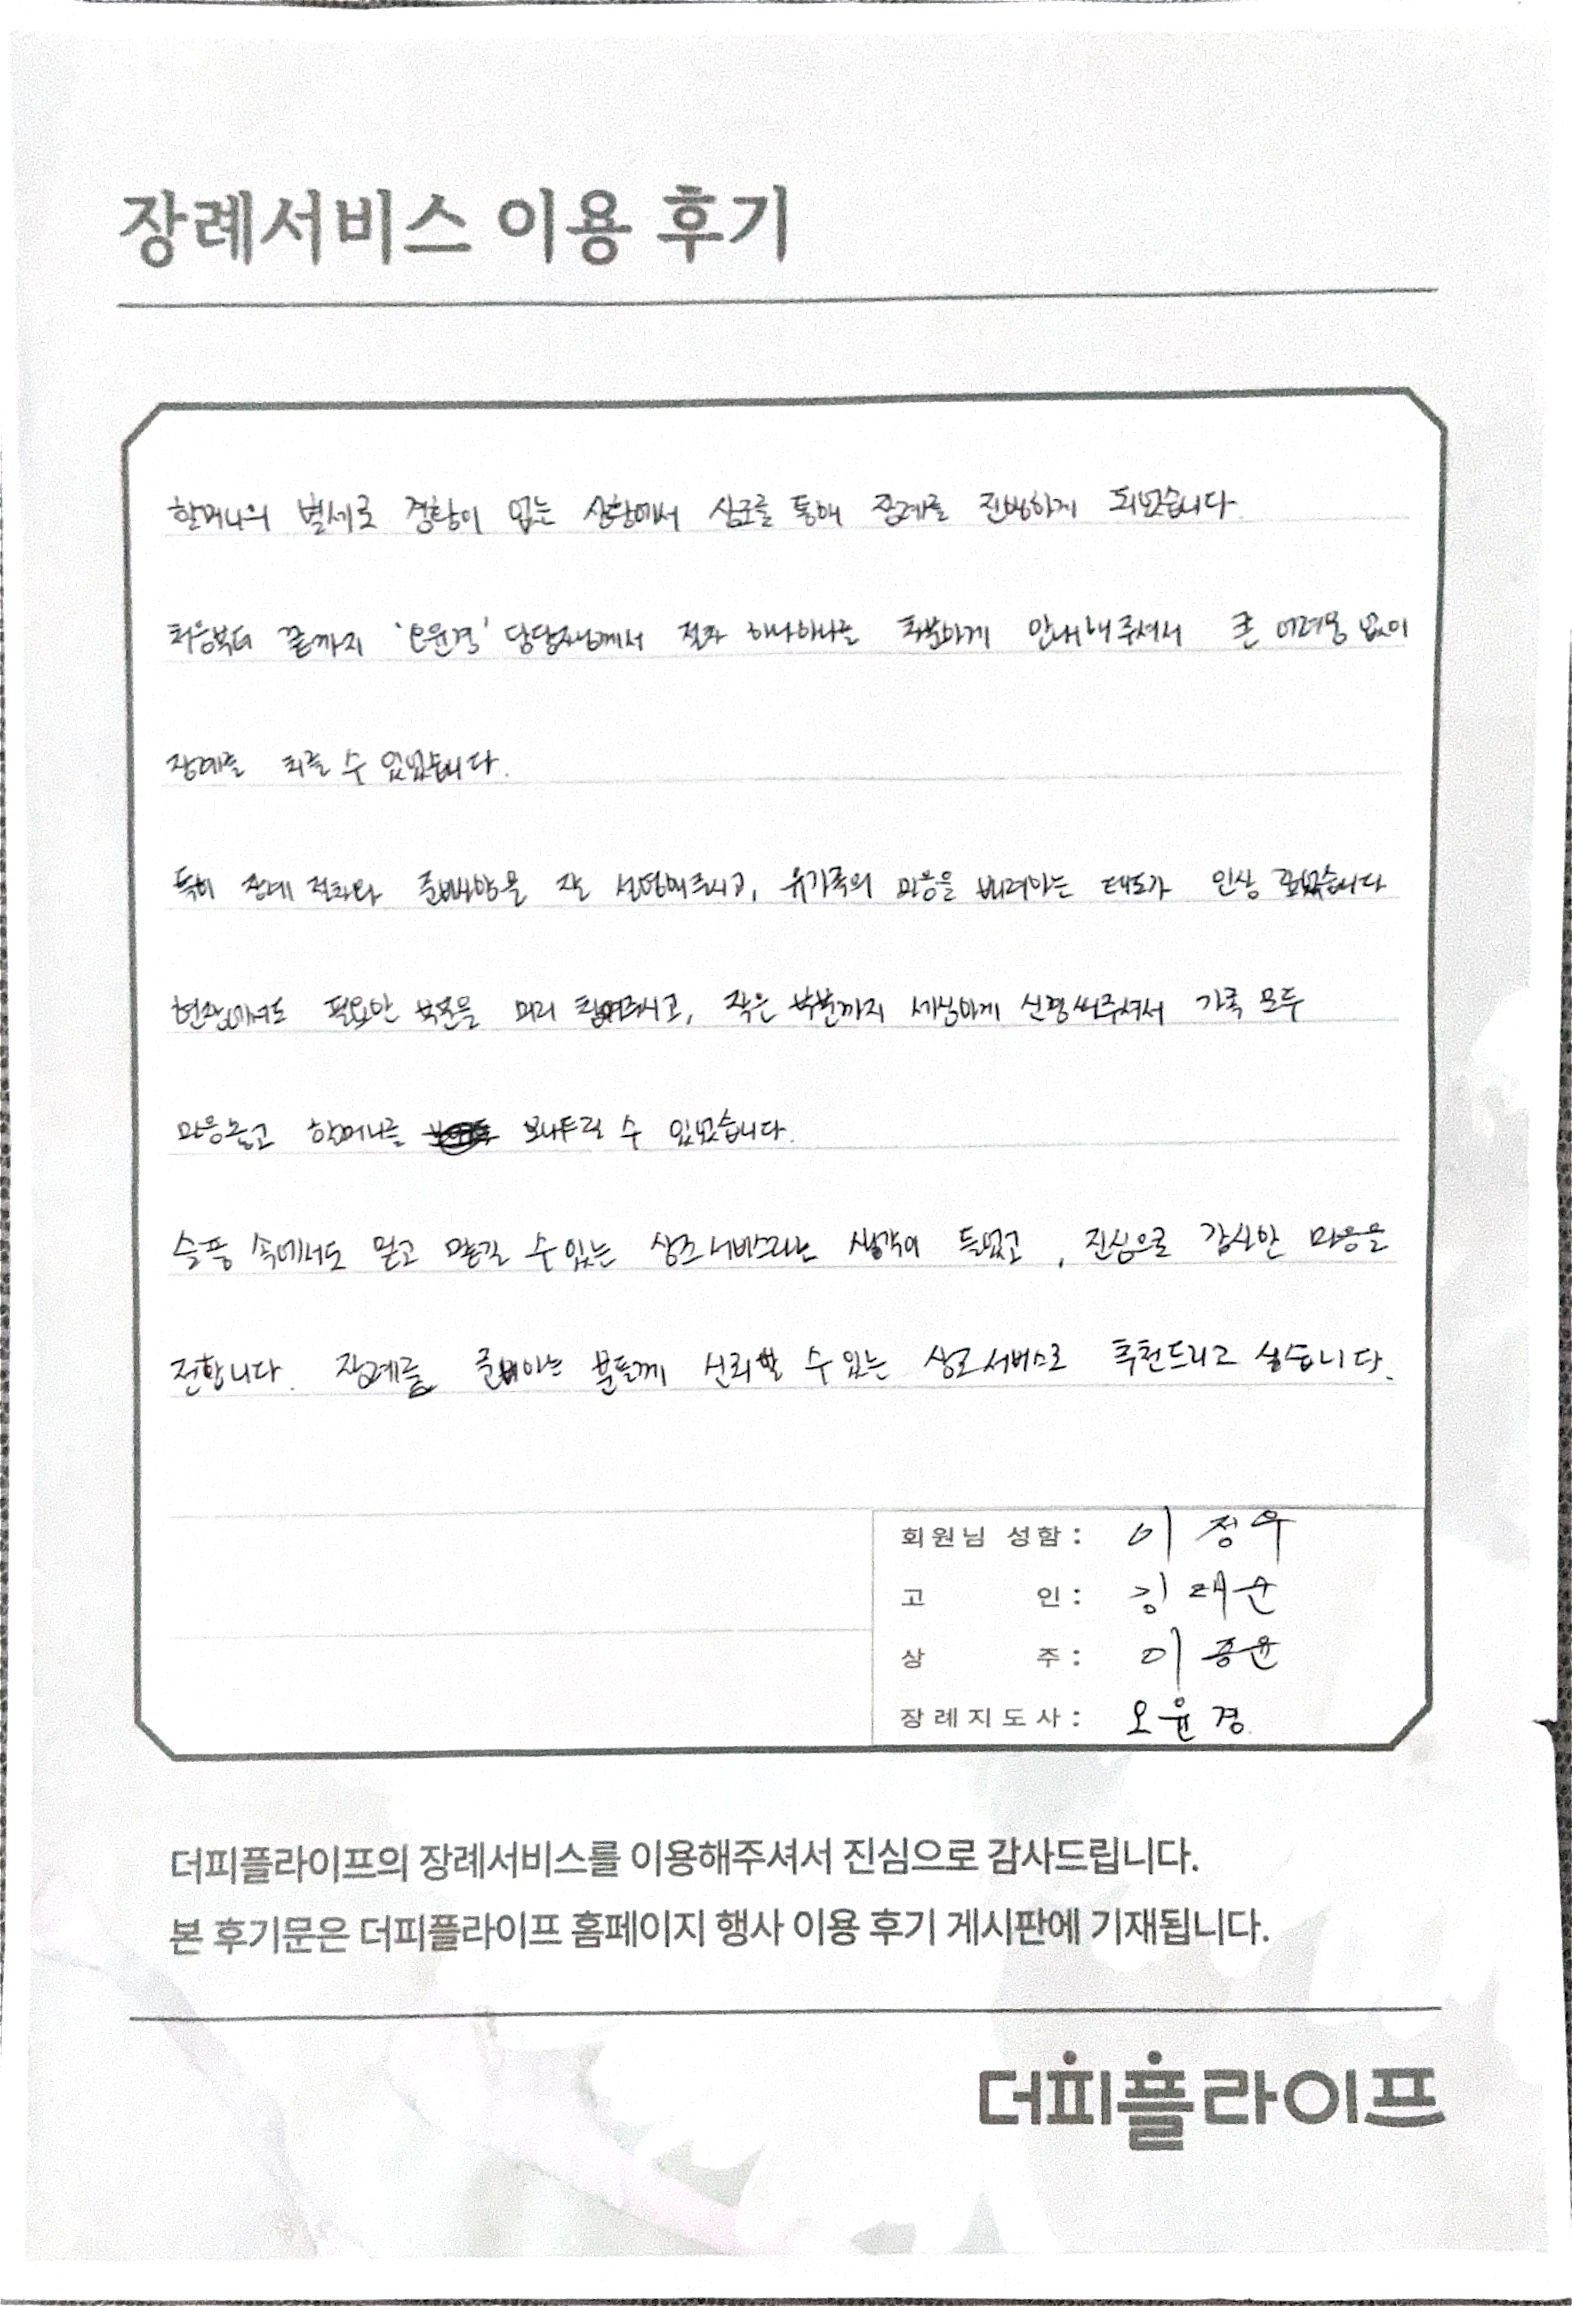 장례서비스 이용 후기
할머니의 별세로 경황이 없는 상황에서 상조를 통해 장례를 진행하게 되었습니다.
처음부터 끝까지 '오윤경' 담당자님께서 절차 하나하나를 차분하게 안내해주셔서 큰 어려움 없이
장례를 치를 수 있었습니다.
특히 장례 절차와 준비사항을 잘 설명해주시고, 유가족의 마음을 배려하는 태도가 인상 깊었습니다
현장에서도 필요한 부분을 미리 챙겨주시고, 작은 부분까지 세심하게 신경써주셔서 가족 모두
마음놓고 할머니를 보내드릴 수 있었습니다.
슬픔 속에서도 믿고 맡길 수 있는 상조서비스라는 생각이 들었고, 진심으로 감사한 마음을
전합니다. 장례를 준비하는 분들께 신뢰할 수 있는 상조서비스로 추천드리고 싶습니다.
회원님 성함: 이정우
고 인: 김태순
상 주: 이종윤
장례지도사: 오윤경.
더피플라이프의 장례서비스를 이용해주셔서 진심으로 감사드립니다.
본 후기문은 더피플라이프 홈페이지 행사 이용 후기 게시판에 기재됩니다.
더피플라이프